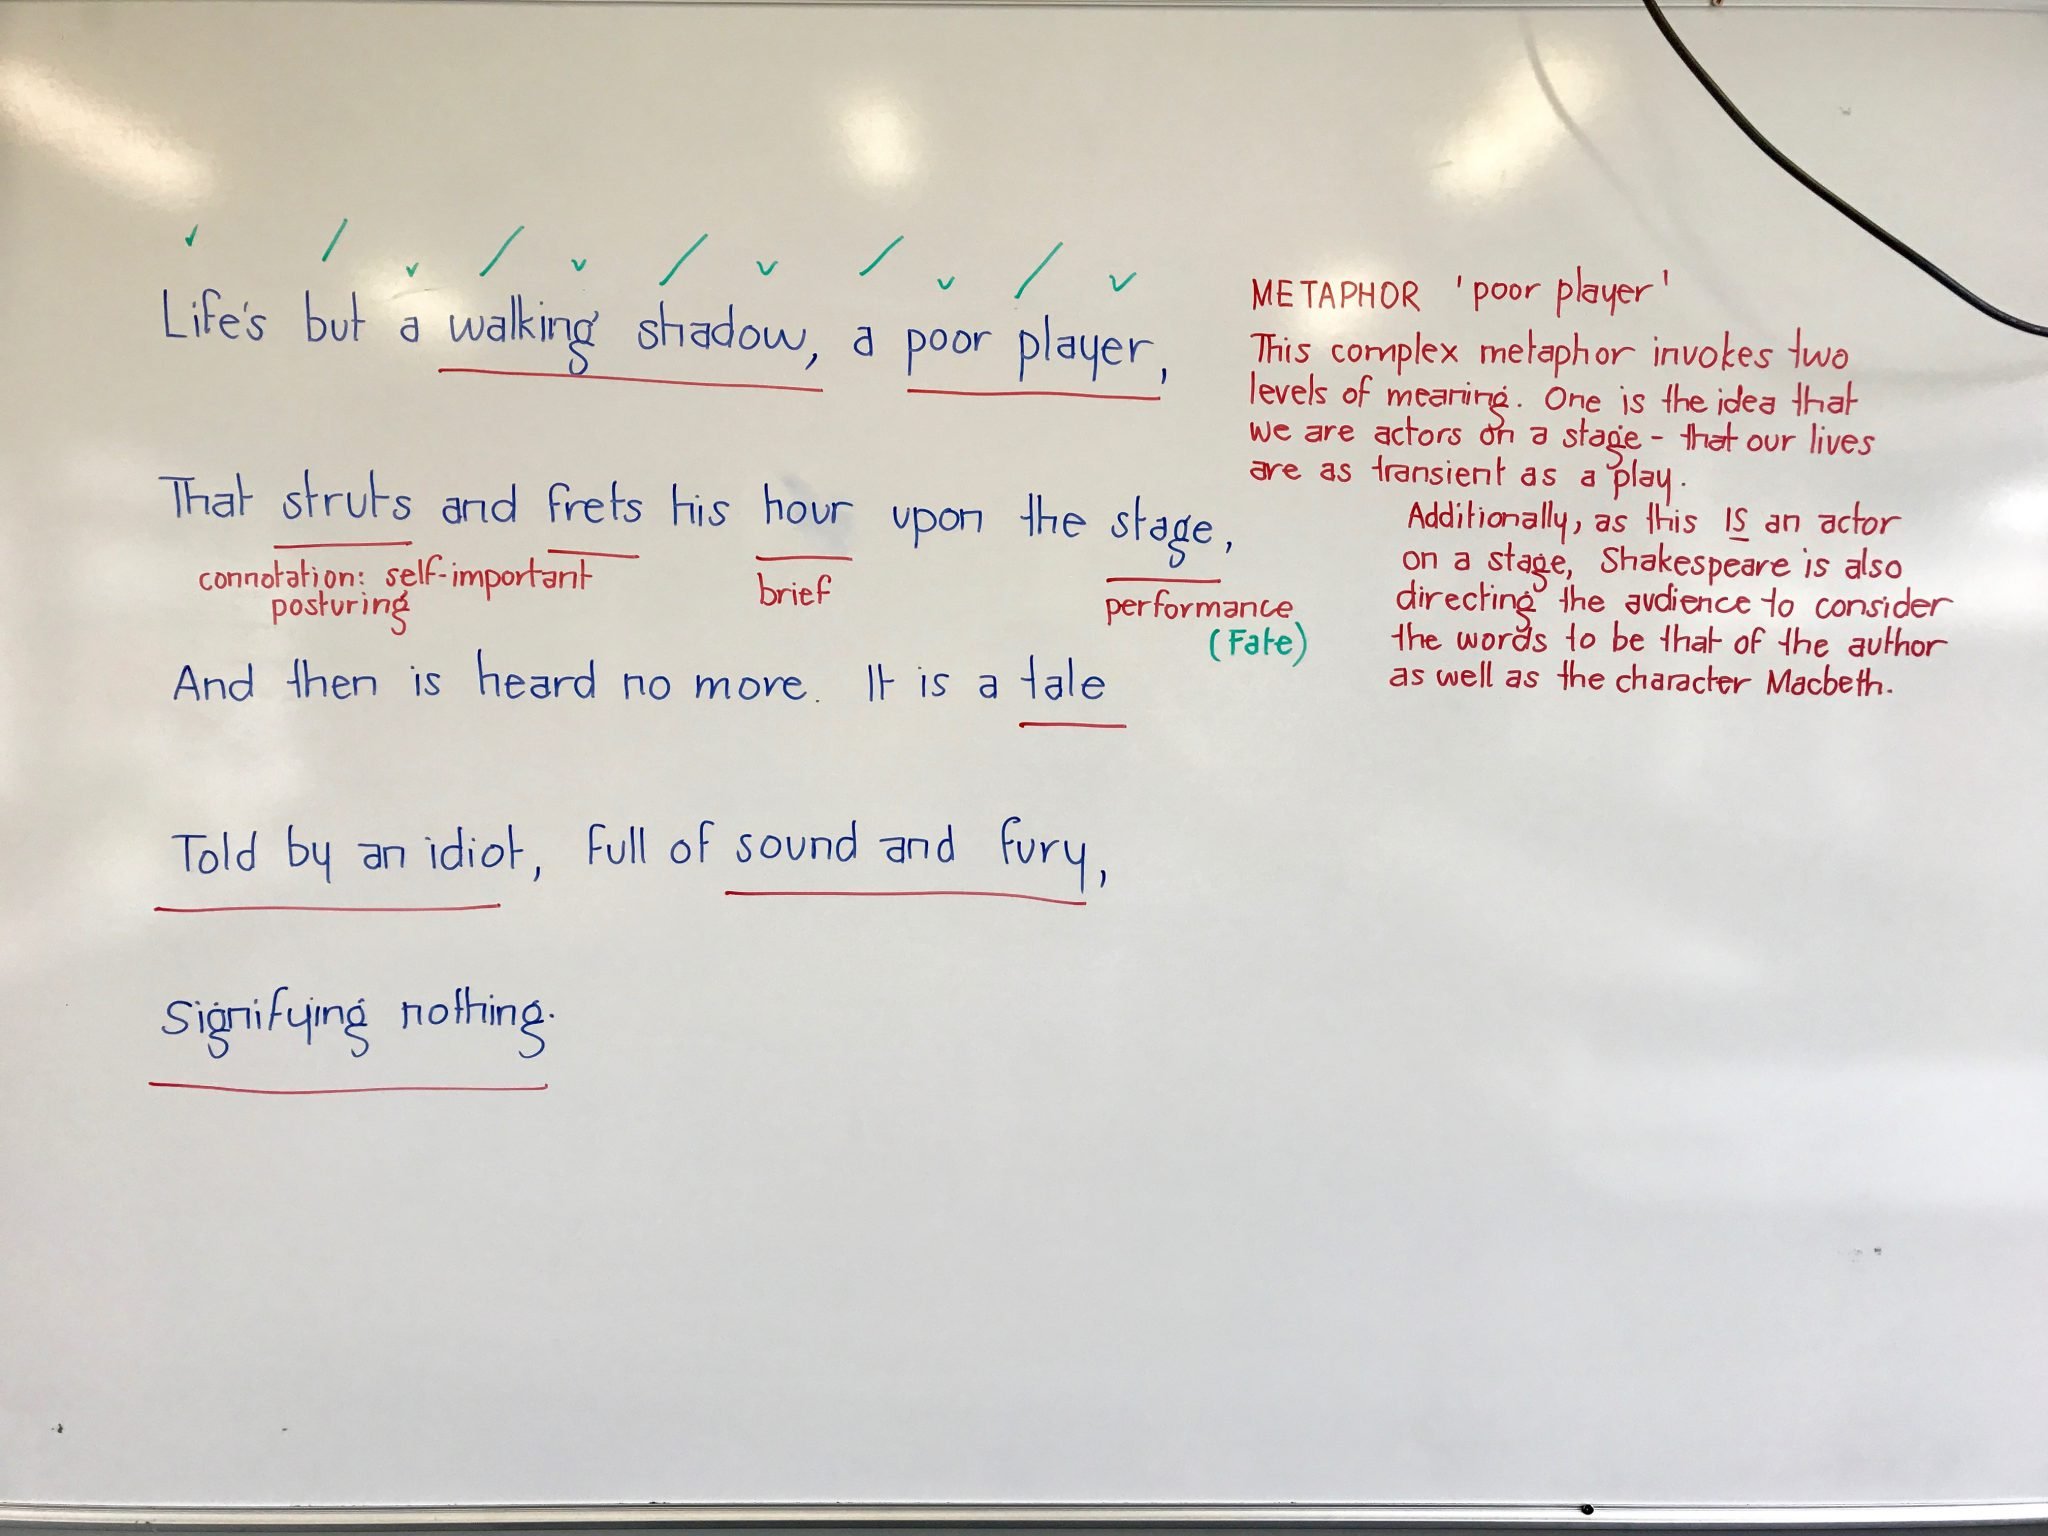 Life's but a walking shadow, a poor player,
That struts and frets his hour upon the stage,
connotation: self-important
posturing
brief
performance
(Fate)
And then is heard no more. It is a tale
Told by an idiot, full of sound and fury,
Signifying nothing.
METAPHOR 'poor player'
This complex metaphor invokes two
levels of meaning. One is the idea that
we are actors on a stage - that our lives
are as transient as a play.
Additionally, as this IS an actor
on a stage, Shakespeare is also
directing the audience to consider
the words to be that of the author
as well as the character Macbeth.